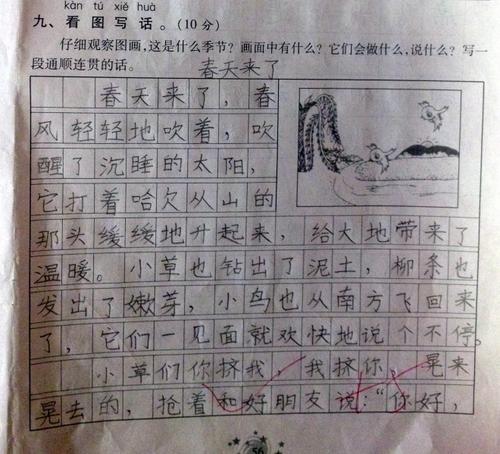 kàn tú xiě huà
九、看图写话。(10分)
仔细观察图画,这是什么季节?画面中有什么?它们会做什么,说什么?写一
段通顺连贯的话。 春天来了
春天来了，春
风轻轻地吹着，吹
醒了沉睡的太阳，
它打着哈欠从山的
那头缓缓地升起来，给大地带来了
温暖。小草也钻出了泥土，柳条也
发出了嫩芽，小鸟也从南方飞回来
了，它们一见面就欢快地说个不停。
小草们你挤我，我挤你，晃来
晃去的，抢着和好朋友说：“你好，
56